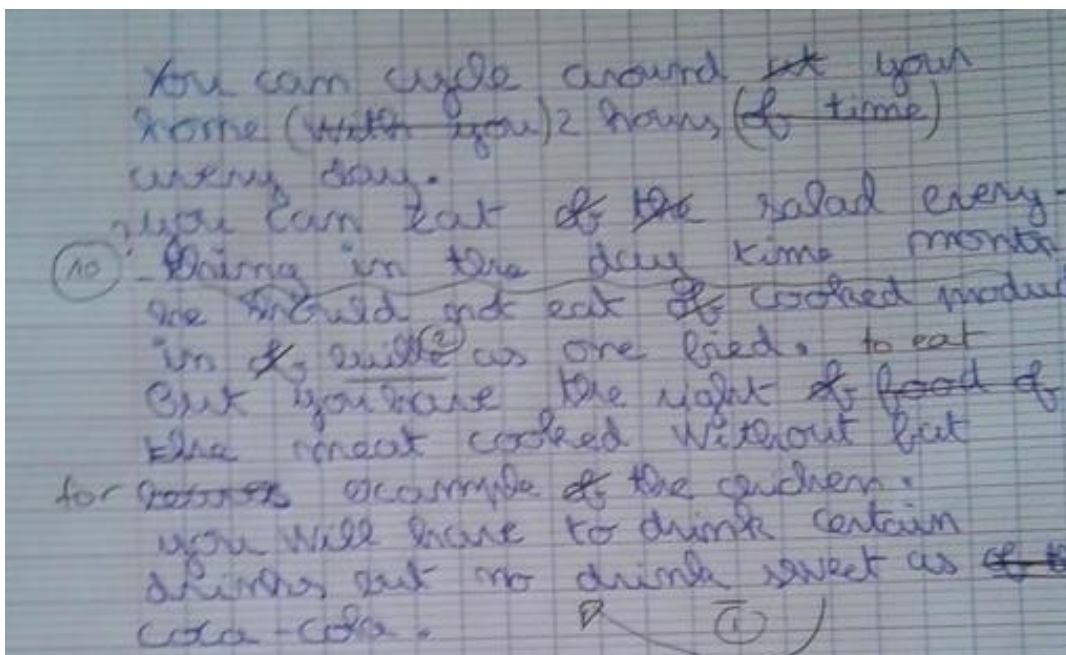 You can cycle around your
home (with you) 2 hours, (of time)
every day.
you can eat of the salad every-
no thing in the day time month
we should not eat of cooked produc
in as one fried. to eat
But you have the right of food of
the meat cooked without fat
for example of the chicken.
you will have to drink certain
drinks but no drink sweet as
coca-cola.
1